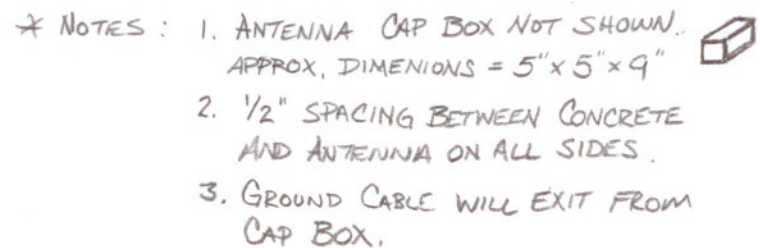 * NOTES : 1. ANTENNA CAP BOX NOT SHOWN.
APPROX. DIMENIONS = 5"x5"x9"
2. 1/2" SPACING BETWEEN CONCRETE
AND ANTENNA ON ALL SIDES.
3. GROUND CABLE WILL EXIT FROM
CAP BOX.